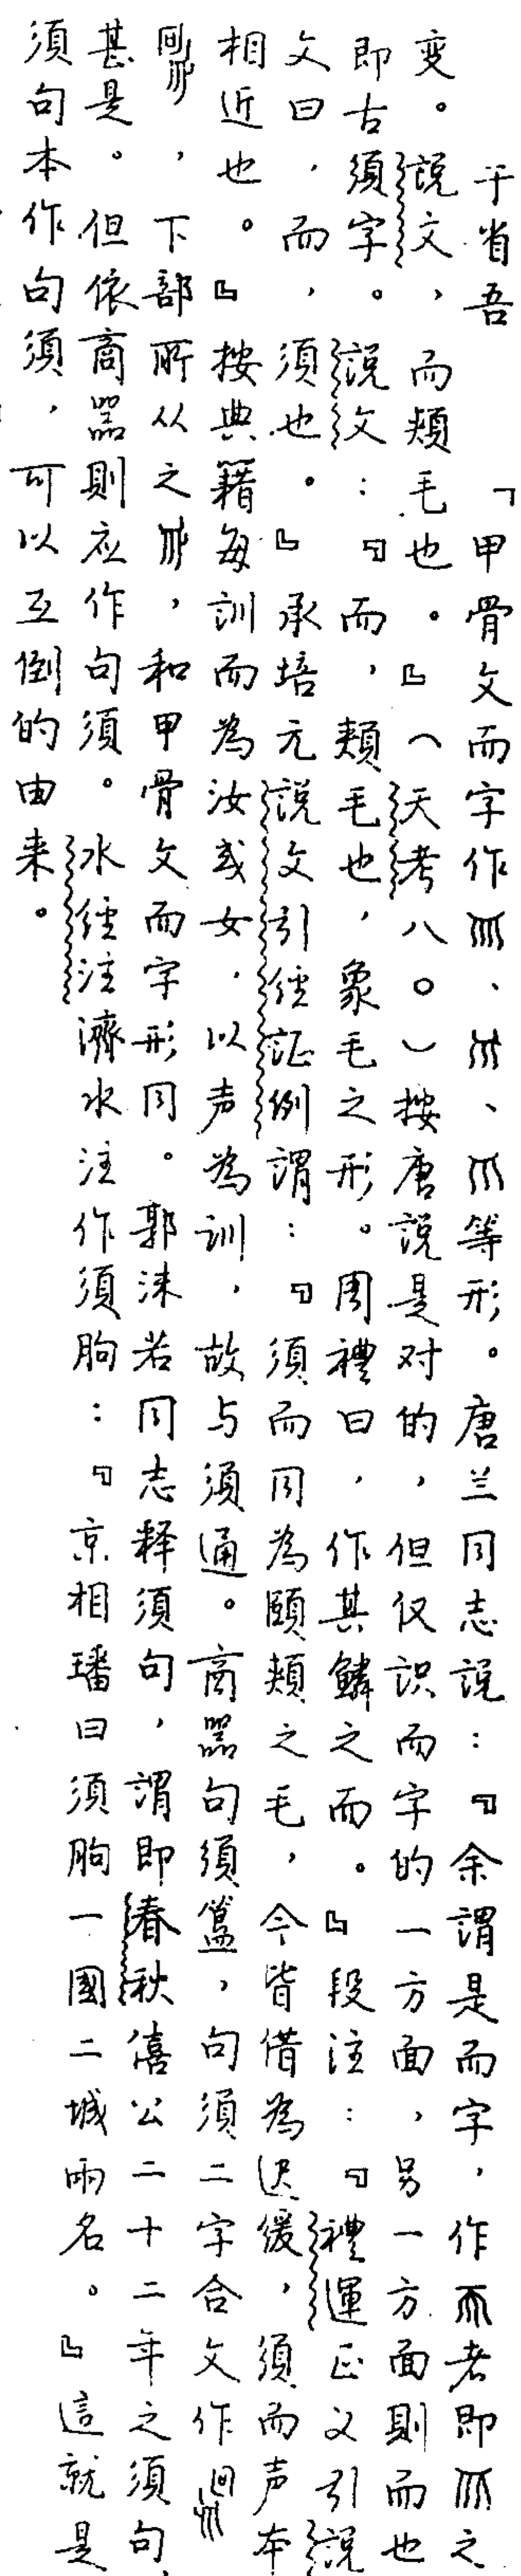 于省吾　「甲骨文而字作、、等形。唐兰同志説：『余謂是而字，作而者即之
変。説文，而頬毛也。』（天考八〇）按唐説是对的，但仅识而字的一方面，另一方面則而也
即古須字。説文：『而，頬毛也，象毛之形。周禮曰，作其鱗之而。』段注：『禮運正义引説
文曰，而，須也。』承培元説文引经証例謂：『須而同為頤頬之毛，今皆借為迟缓，須而声本
相近也。』按典籍每訓而為汝或女，以声為訓，故与須通。商器句須簋，句須二字合文作
，下部所从之，和甲骨文而字形同。郭沫若同志释須句，謂即春秋僖公二十二年之須句，
甚是。但依商器則应作句須。水经注濟水注作須朐：『京相璠曰須朐一國二城兩名。』這就是
須句本作句須，可以互倒的由来。